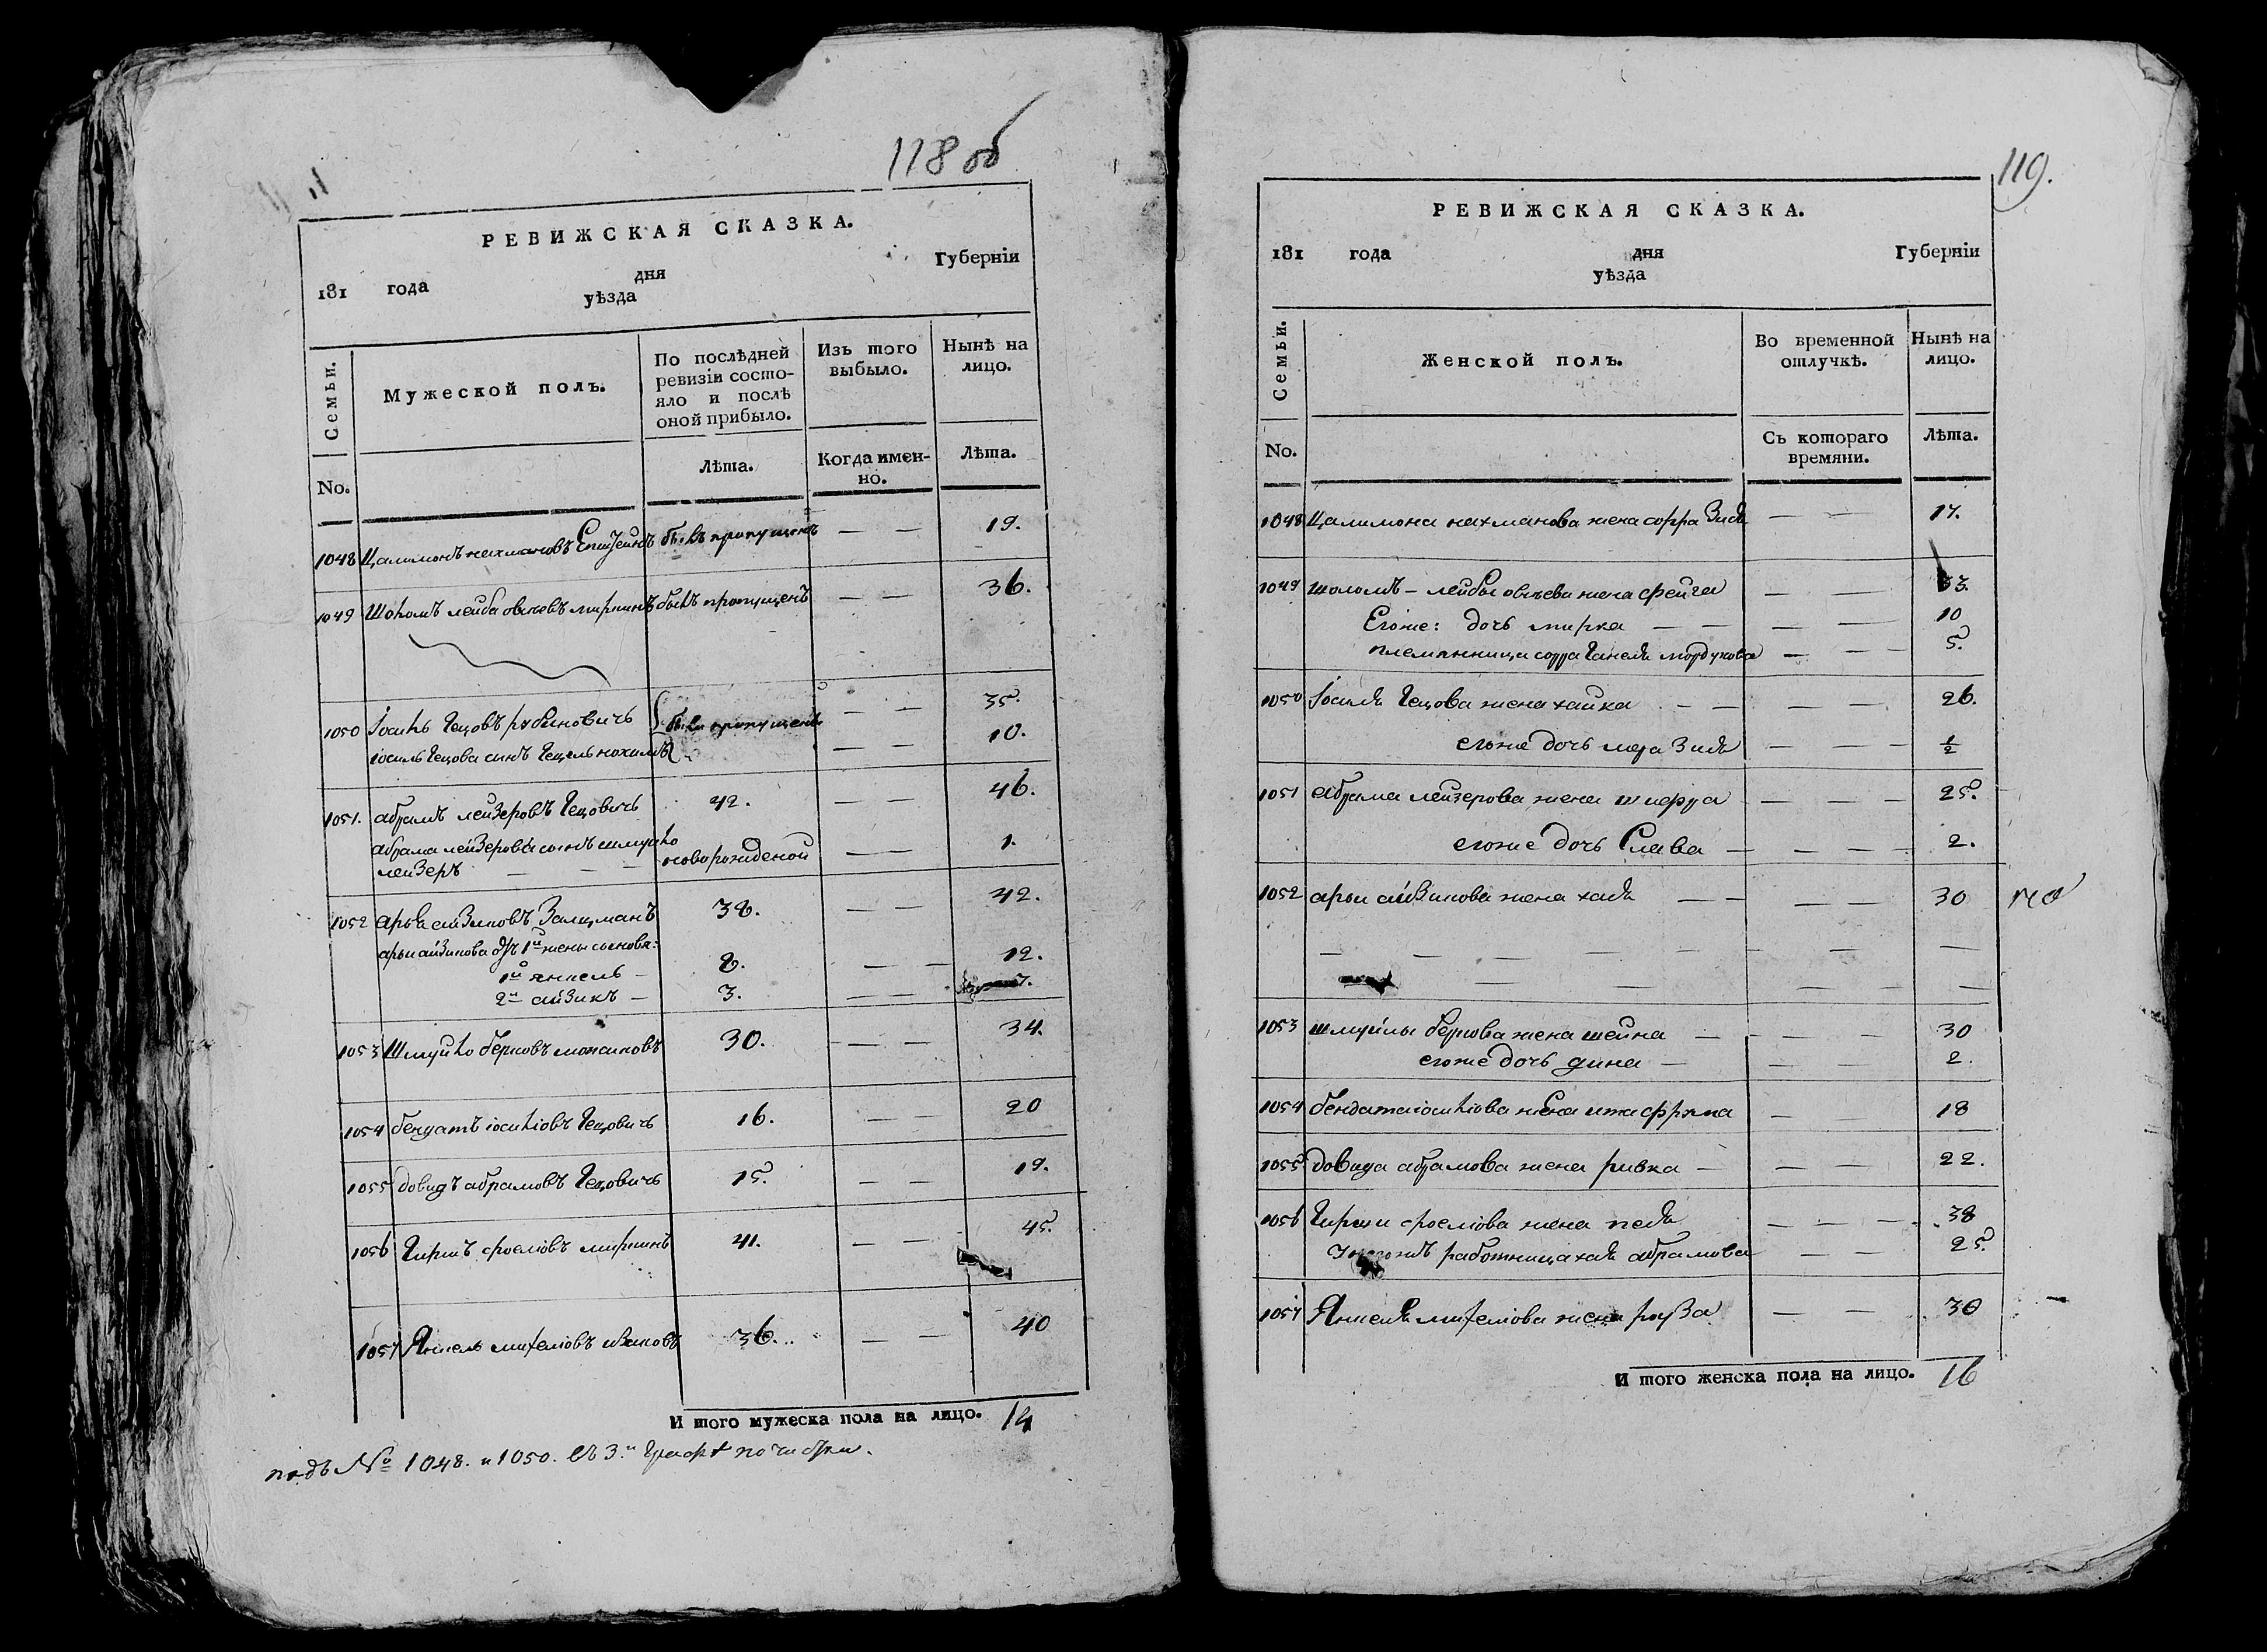 118 об
РЕВИЖСКАЯ СКАЗКА.
181 года дня Губерніи
уѣзда
Семьи.
Мужеской полъ.
По послѣдней ревизіи состояло и послѣ оной прибыло.
Изъ того выбыло.
Нынѣ на лицо.
No.
Лѣта.
Когда именно.
Лѣта.
1048 Цалимонъ нахмановъ былъ пропущенъ — — 19.
1049 Шоломъ лейба овсеевъ миркинъ былъ пропущенъ — — 36.
1050 Іосиль Гецовъ рубиновичъ были пропущены — — 35.
іосиль Гецова сынъ Гецель нохимъ — — 10.
1051. абрамъ лейзеровъ Гецовичъ 42. — — 46.
абрама лейзерова сынъ шмуйло
лейзеръ — — — новорожденой — — 1.
1052 арья айзиковъ Залцманъ 38. — — 42.
арьи айзикова отъ 1й жены сыновя:
1й янкель — 8. — — 12.
2й айзикъ — 3. — — 7.
1053 Шмуйло берковъ 30. — — 34.
1054 бендатъ іосиліовъ Гецовичъ 16. — — 20
1055 довидъ абрамовъ Гецовичъ 15. — — 19.
1056 Гиршъ сроеліовъ миркинъ 41. — — 45.
1057 Янкель михеліовъ 36. — — 40
И того мужеска пола на лицо. 14
подъ № 1048. и 1050. въ 3й графѣ почистки.
119.
РЕВИЖСКАЯ СКАЗКА.
181 года дня Губерніи
уѣзда
Семьи.
Женской полъ.
Во временной отлучкѣ.
Нынѣ на лицо.
No.
Съ котораго времяни.
Лѣта.
1048 Цалимона нахманова жена сорра Зисля — — 17.
1049 шоломъ – лейбы овсеева жена фейга — — 33.
Егоже: дочь мирка — — — — 10
племянница сорра Ганеля мордухова — — — 5.
1050 Іосиля Гецова жена хайка — — — — 26.
егоже дочь мера Зисля — — — 1/2
1051 абрама лейзерова жена шифра — — — 25.
егоже дочь Слава — — — — 2.
1052 арьи айзикова жена хая — — — — 30
1053 шмуйлы беркова жена шейна — — — — 30
егоже дочь дина — — — 2.
1054 бендата іосиліова жена ита фрума — — — 18
1055 довида абрамова жена ривка — — — 22.
1056 Гирши сроеліова жена песя — — — 38
работница хая абрамова — — 25.
1057 Янкеля михеліова жена роза — — 30
И того женска пола на лицо. 16